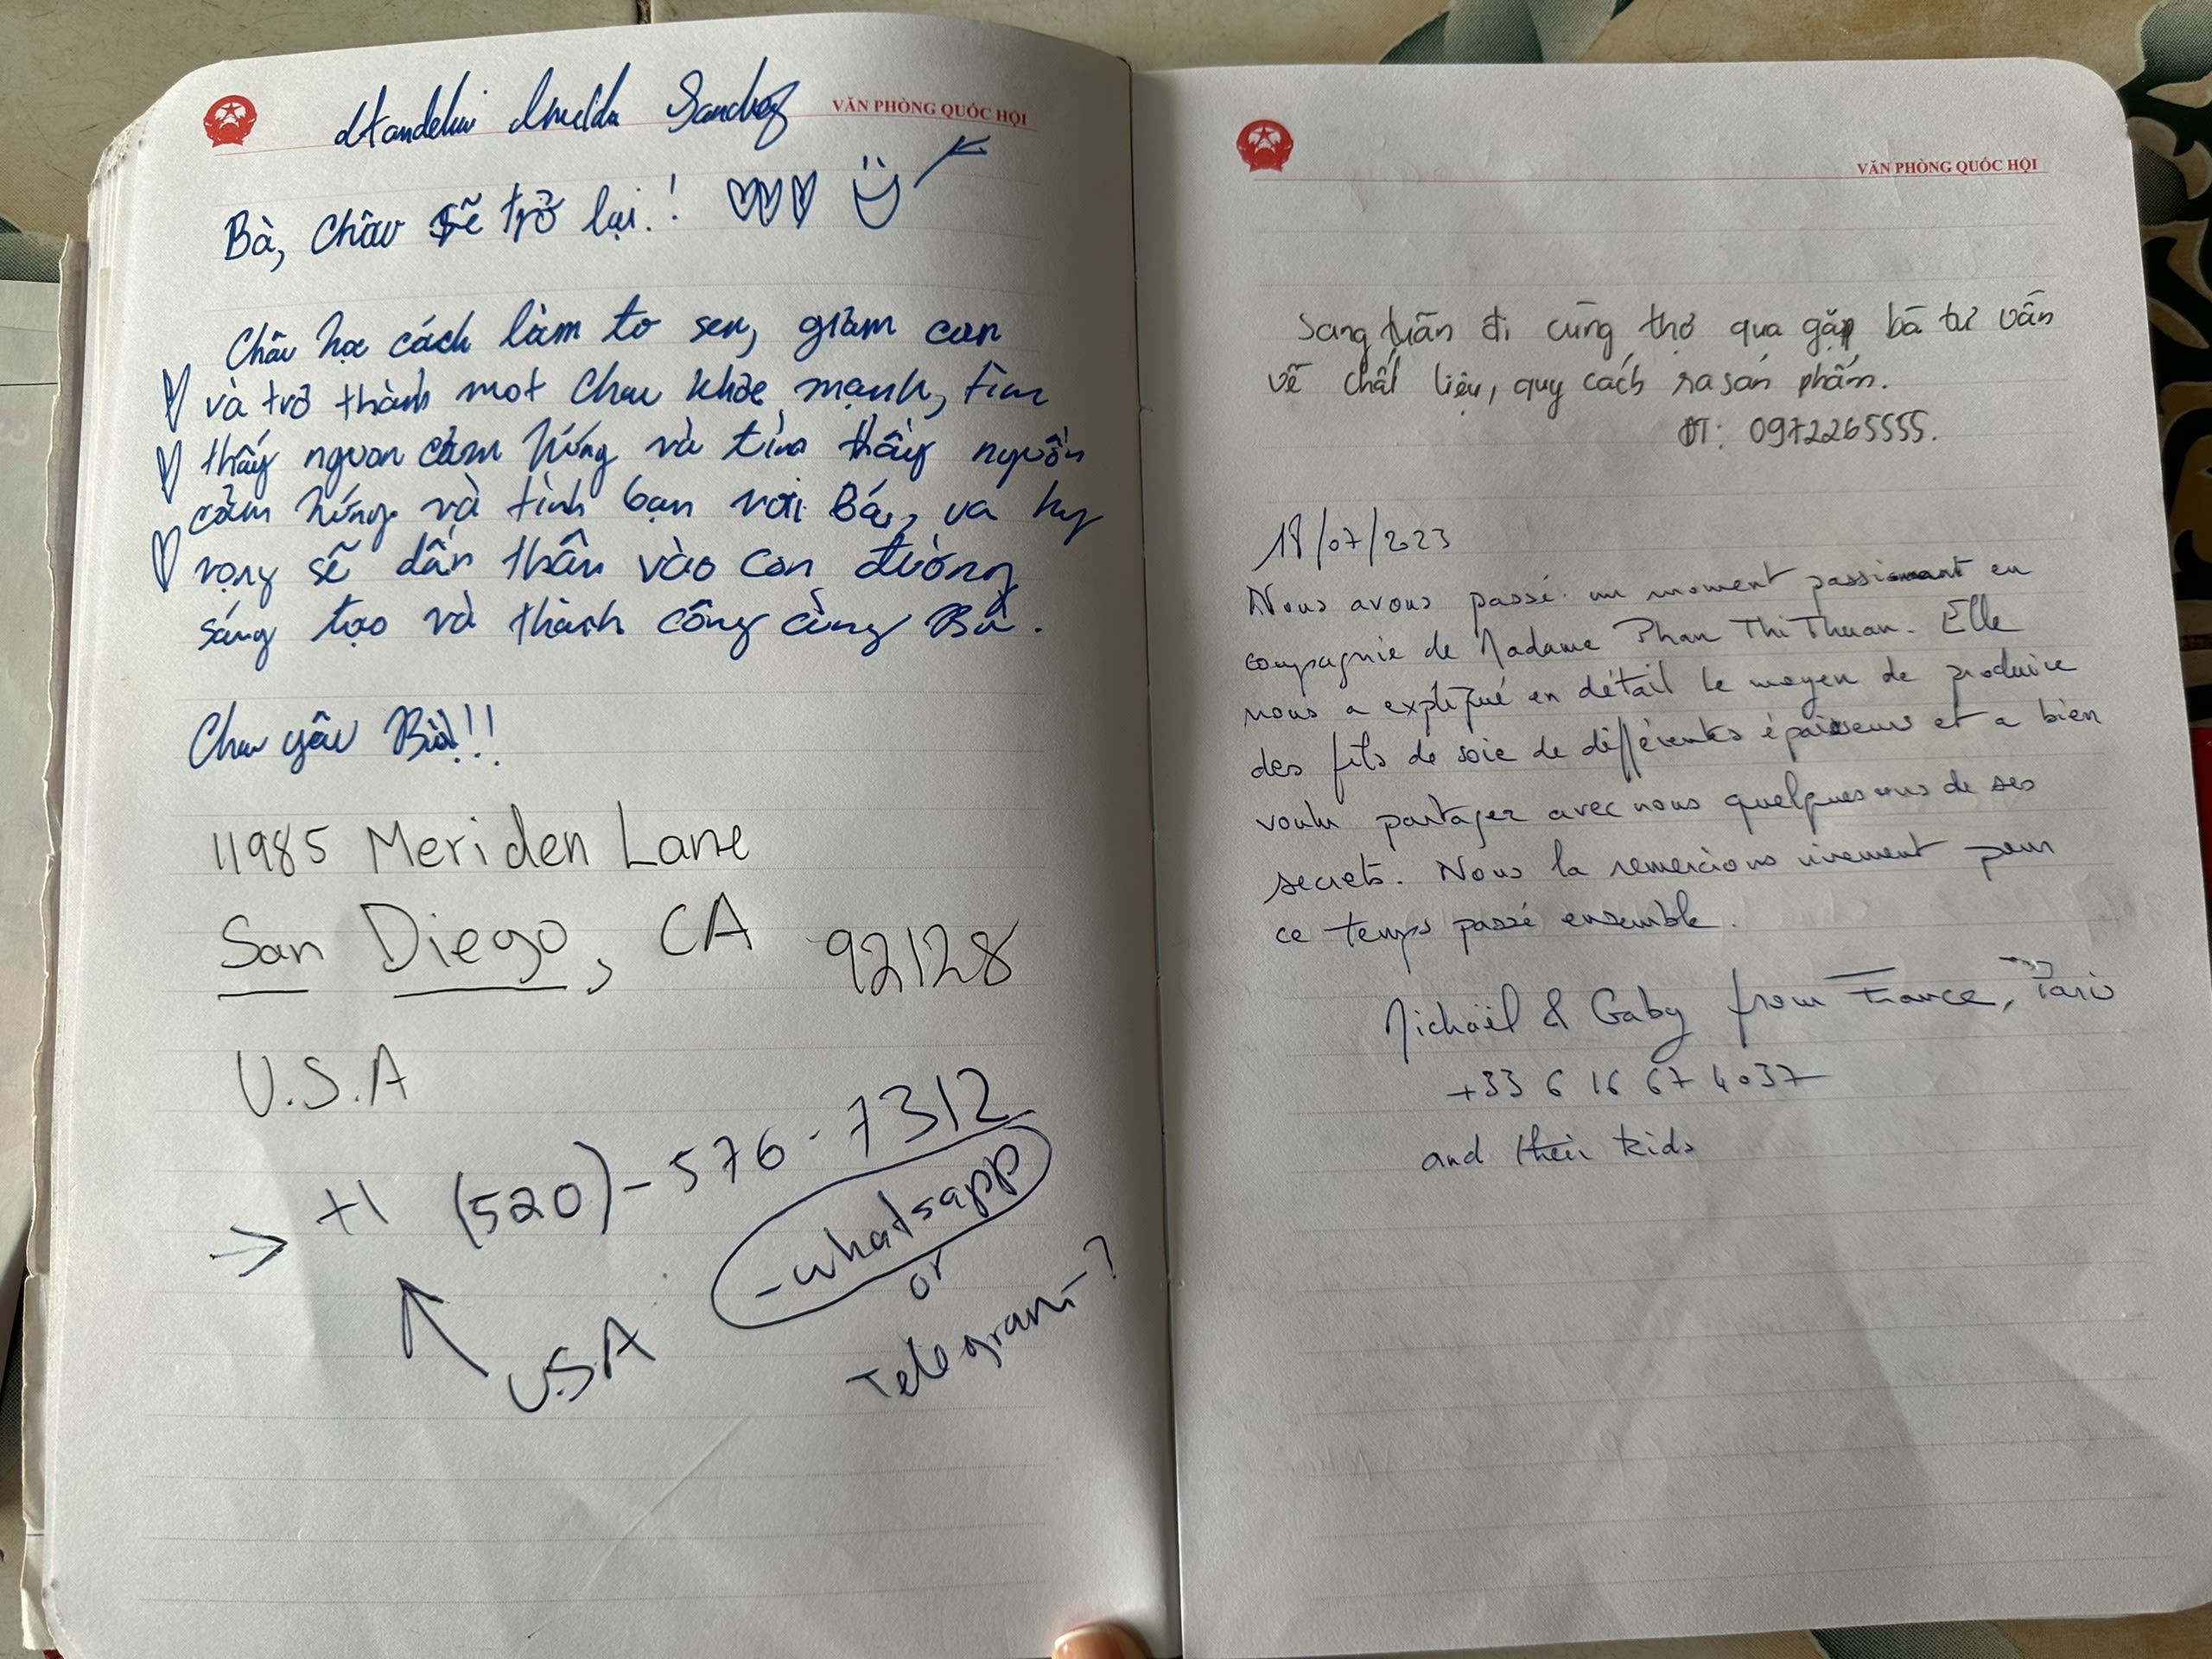 Sanchez VĂN PHÒNG QUỐC HỘI
Bà, Cháu sẽ trở lại!
Cháu học cách làm tơ sen, giảm can
và trở thành mot Chau khỏe mạnh, tìm
thấy nguon cảm hứng và tìm thấy nguồn
cảm hứng và tình bạn với Bá, va hy
vọng sẽ dấn thân vào con đường
sáng tạo và thành công cùng Bà.
Chau yêu Bà!!
11985 Meriden Lane
San Diego, CA 92128
U.S.A
+1 (520)-576-7312
-whatsapp
or
Telegram?
U.S.A
VĂN PHÒNG QUỐC HỘI
Sang tuần đi cùng thợ qua gặp bà tư vấn
về chất liệu, quy cách ra sản phẩm.
ĐT: 0972265555.
18/07/2023
Nous avons passé un moment passionnant en
compagnie de Madame Phan Thi Thuan. Elle
nous a expliqué en détail le moyen de produire
des fils de soie de différentes épaisseurs et a bien
voulu partager avec nous quelques uns de ses
secrets. Nous la remercions vivement pour
ce temps passé ensemble.
Michaël & Gaby from France, Paris
+33 6 16 67 4037
and their kids